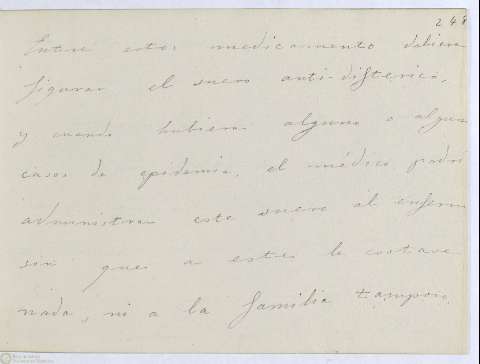 248
Entre estos medicamento debiera
figurar el suero anti-differico,
y cuando hubiera alguno o algun
casos de epidemia, el médico podrí
administrar este suero al enferm
sin que a este le costara
nada, ni a la familia tampoco.